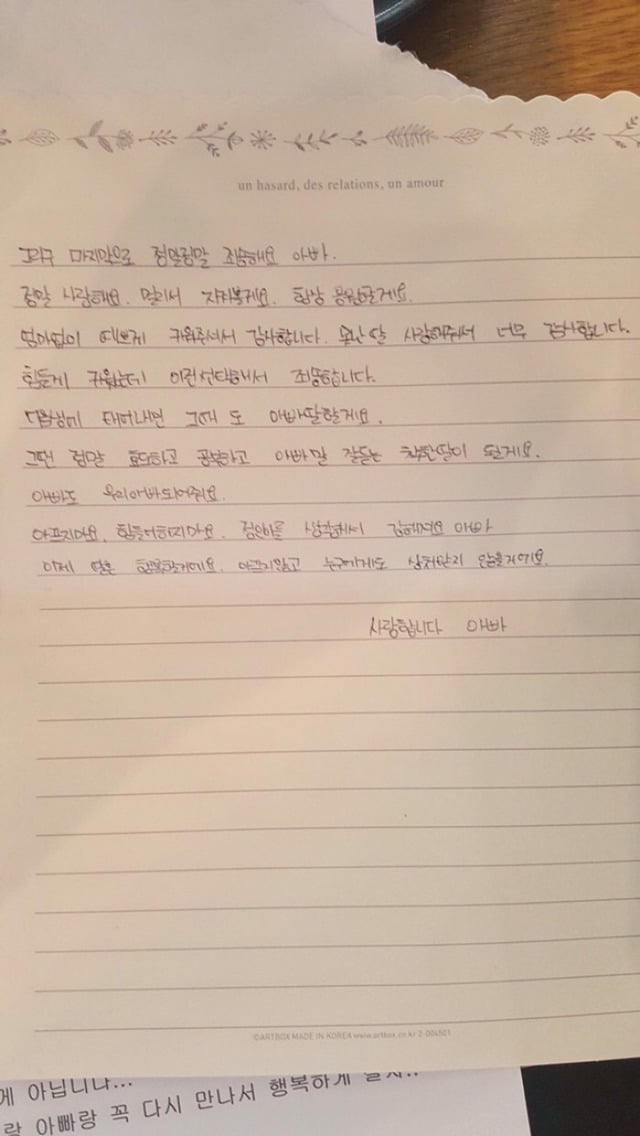 un hasard, des relations, un amour
그리구 마지막으로 정말정말 죄송해요 아빠.
정말 사랑해요. 멀리서 지켜볼게요. 항상 응원할게요.
엄마없이 예쁘게 키워주셔서 감사합니다. 못난 딸 사랑해줘서 너무 감사합니다.
힘들게 키웠는데 이런선택해서 죄송합니다.
다음생에 태어나면 그때 도 아빠딸할게요.
그땐 정말 효도하고 공부하고 아빠말 잘듣는 착한딸이 될게요.
아빠도 우리아빠되어줘요.
아프지마요. 힘들어하지마요. 생각해서 아빠
이제 딸은 행복할거에요. 아프지않고 누구에게도 상처받지 않을거에요.
사랑합니다 아빠
©ARTBOX MADE IN KOREA www.artbox.co.kr 2-004501
게 아닙니다...
랑 아빠랑 꼭 다시 만나서 행복하게 살자..